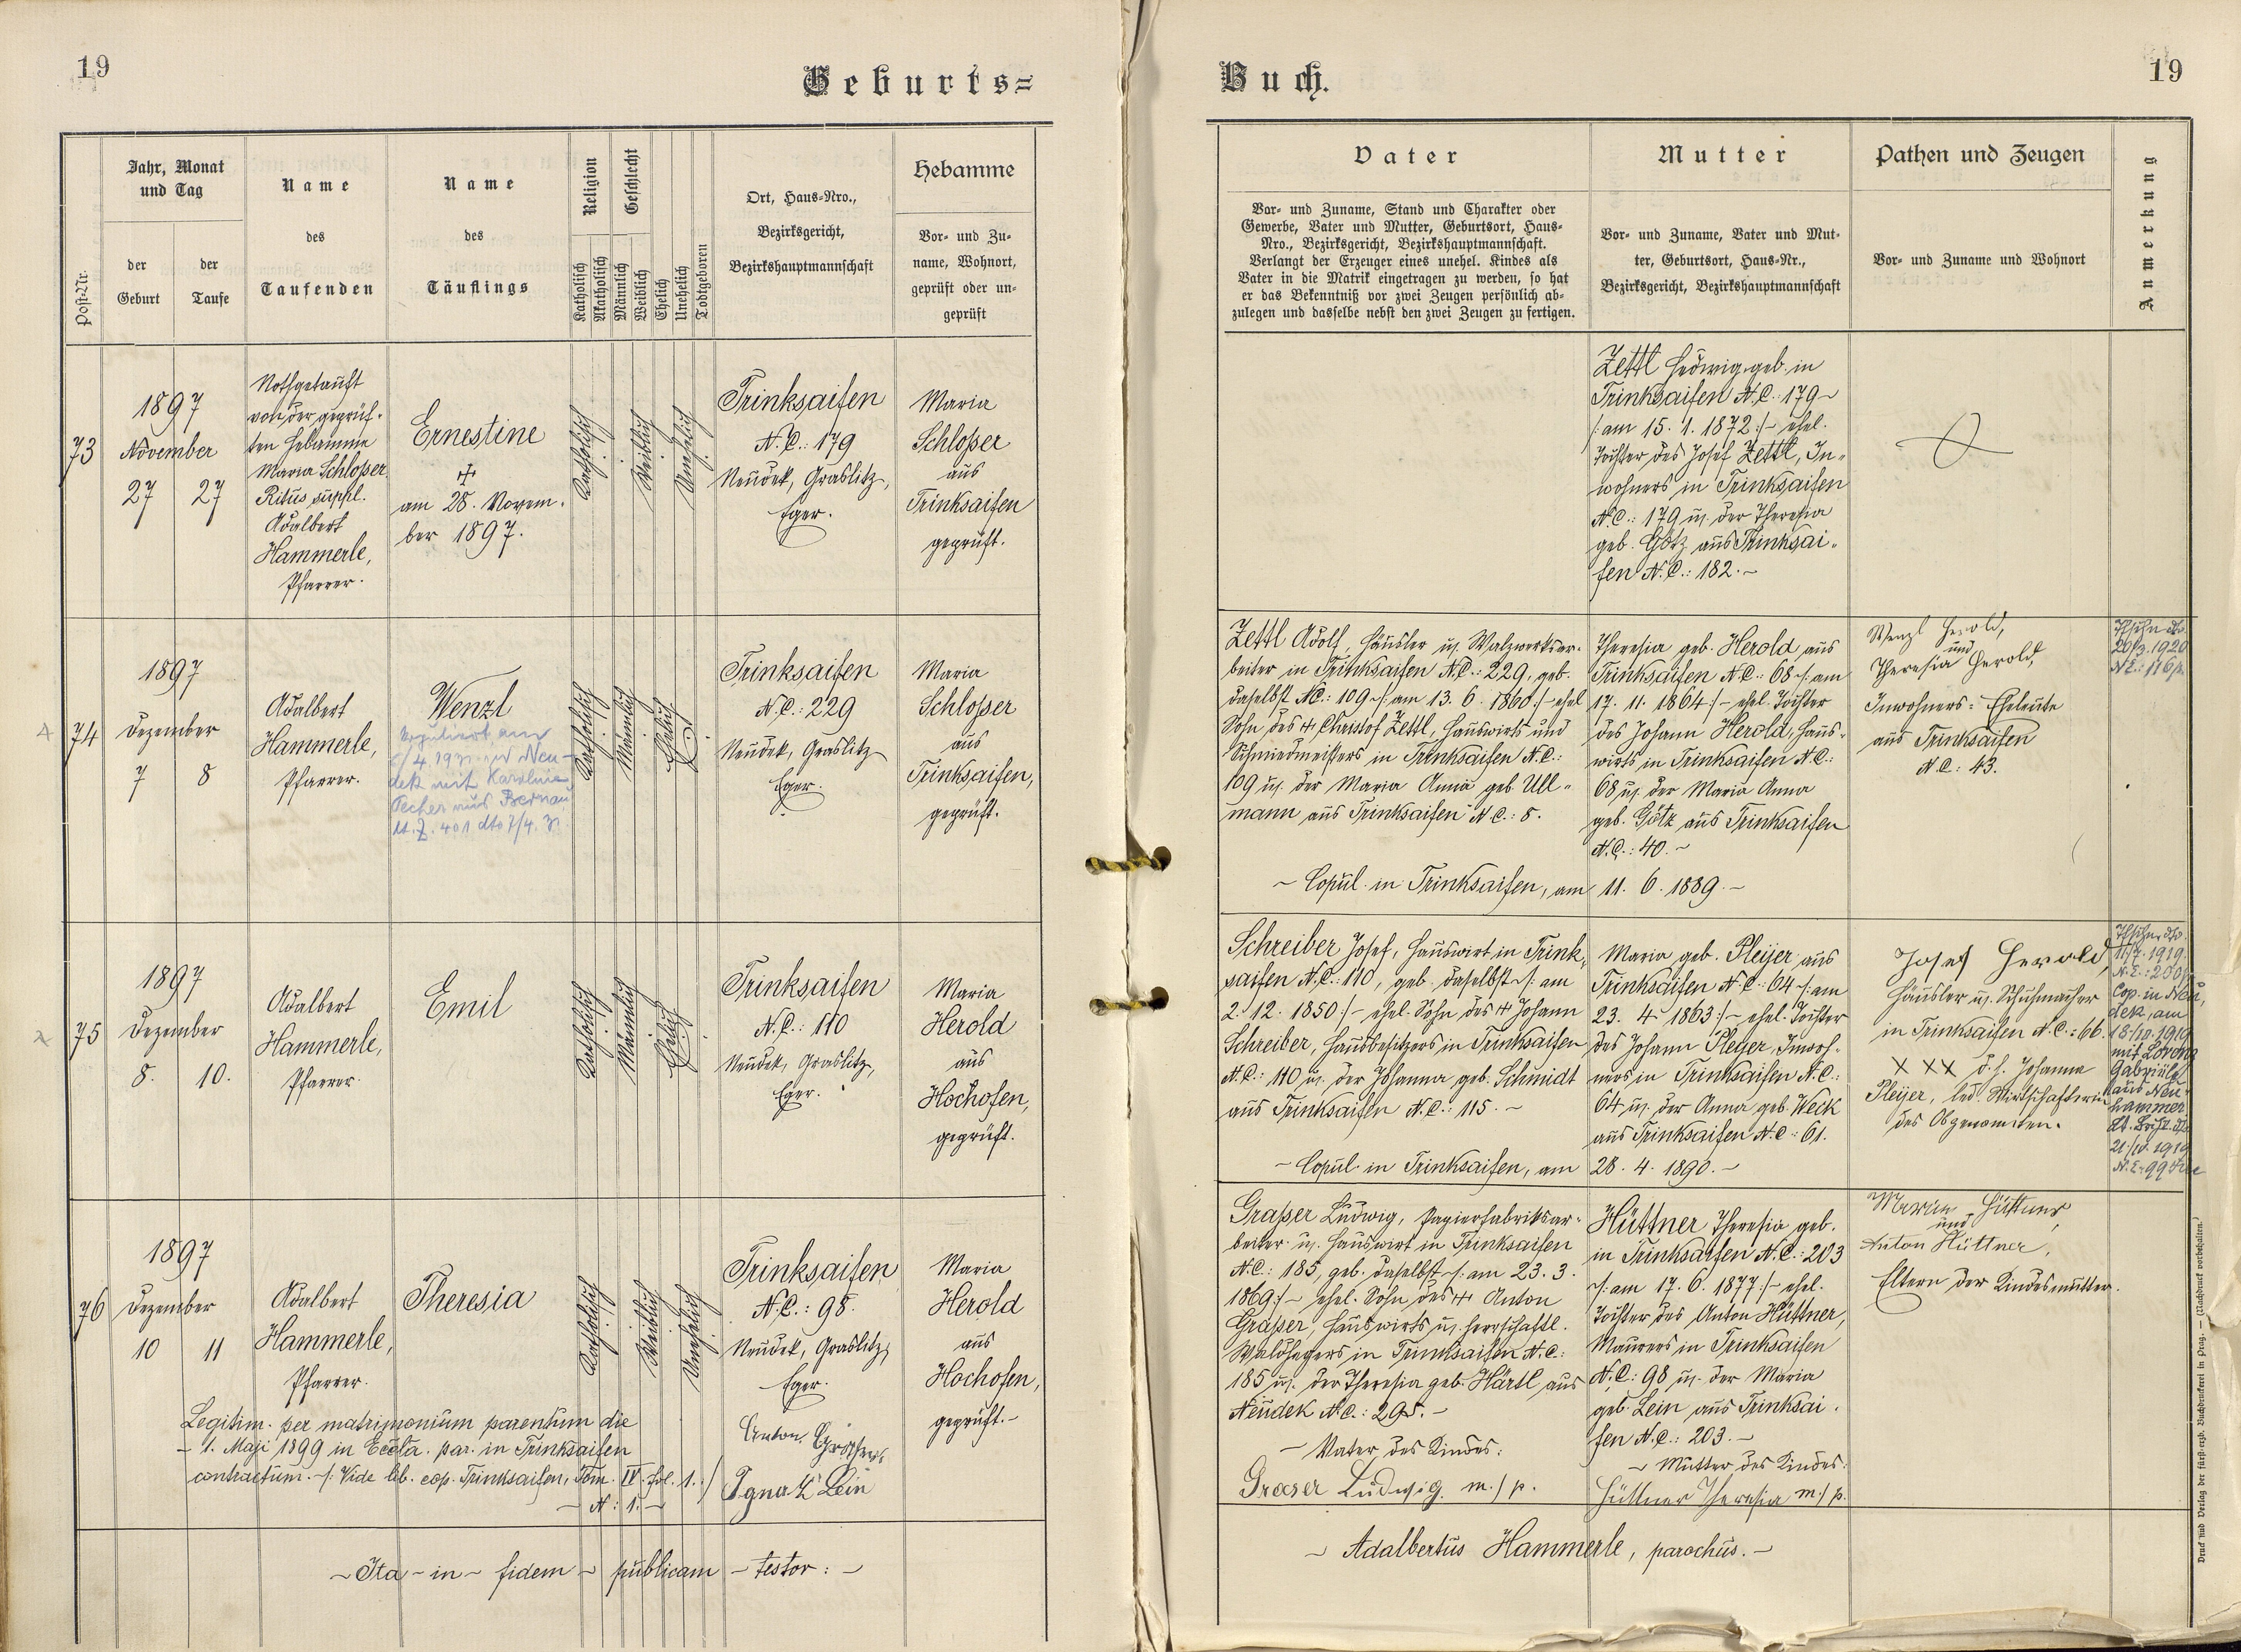 19
Geburts=
Post-Nr.
Jahr, Monat
und Tag
der
Geburt
der
Taufe
Name
des
Taufenden
Name
des
Täuflings
Religion
Katholisch
Akatholisch
Geschlecht
Männlich
Weiblich
Ehelich
Unehelich
Todtgeboren
Ort, Haus=Nro.,
Bezirksgericht,
Bezirkshauptmannschaft
Hebamme
Vor= und Zu=
name, Wohnort,
geprüft oder un=
geprüft
73
1897
November
27
27
Nothgetauft
von der geprüf-
ten Hebamme
Maria Schloßer
Ritus suppl.
Adalbert
Hammerle,
Pfarrer.
Ernestine
+
am 28. Novem-
ber 1897.
Katholisch
Weiblich
Unehelich
Trinksaifen
N.C.: 179
Neudek, Graslitz,
Eger.
Maria
Schloßer
aus
Trinksaifen
geprüft.
74
1897
Dezember
7
8
Adalbert
Hammerle,
Pfarrer.
Wenzl
am
in Neu-
dek mit Karolina
Pecher aus Bernau
Katholisch
Männlich
Ehelich
Trinksaifen
N.C.: 229
Neudek, Graslitz
Eger.
Maria
Schloßer
aus
Trinksaifen,
geprüft.
75
1897
Dezember
8.
10.
Adalbert
Hammerle,
Pfarrer.
Emil
Katholisch
Männlich
Ehelich
Trinksaifen
N.C.: 110
Neudek, Graslitz,
Eger.
Maria
Herold
aus
Hochofen,
geprüft.
76
1897
Dezember
10
11
Adalbert
Hammerle,
Pfarrer.
Theresia
Katholisch
Weiblich
Unehelich
Trinksaifen
N.C.: 98.
Neudek, Graslitz,
Eger.
Maria
Herold
aus
Hochofen,
geprüft.-
Legitim. per matrimonium parentum die
- 1. Maji 1899 in Eccla. par. in Trinksaifen
contractum. -/: Vide lib. cop. Trinksaifen, Tom. IV. fol. 1. :/
- N: 1. -
Anton
Ignatz Lein
~ Ita ~ in ~ fidem ~ publicam ~ testor: ~
Buch.
19
Vater
Vor= und Zuname, Stand und Charakter oder
Gewerbe, Vater und Mutter, Geburtsort, Haus=
Nro., Bezirksgericht, Bezirkshauptmannschaft.
Verlangt der Erzeuger eines unehel. Kindes als
Vater in die Matrik eingetragen zu werden, so hat
er das Bekenntniß vor zwei Zeugen persönlich ab=
zulegen und dasselbe nebst den zwei Zeugen zu fertigen.
Mutter
Vor= und Zuname, Vater und Mut=
ter, Geburtsort, Haus=Nr.,
Bezirksgericht, Bezirkshauptmannschaft
Pathen und Zeugen
Vor= und Zuname und Wohnort
Anmerkung
Zettl Hedwig, geb. in
Trinksaifen N.C.: 179 ~
/: am 15. 1. 1872 :/ - ehel.
Tochter des Josef Zettl, In-
wohners in Trinksaifen
N.C.: 179 u. der Theresia
geb. Götz aus Trinksai-
fen N.C.: 182. ~
Zettl Adolf, Häusler u. Walzwerksar-
beiter in Trinksaifen N.C.: 229, geb.
daselbst N.C.: 109 -/: am 13. 6. 1860 :/ - ehel
Sohn des + Christof Zettl, Hauswirts und
Schmiedmeisters in Trinksaifen N.C.:
109 u. der Maria Anna geb. Ull-
mann aus Trinksaifen N.C.: 8.
Theresia geb. Herold aus
Trinksaifen N.C.: 68 -/: am
17. 11. 1864 :/ - ehel. Tochter
des Johann Herold, Haus-
wirts in Trinksaifen N.C.:
68 u. der Maria Anna
geb. Götz aus Trinksaifen
N.C.: 40. ~
~ Copul. in Trinksaifen, am 11. 6. 1889. ~
Wenzl Herold,
und
Theresia Herold,
Inwohners = Eheleute
aus Trinksaifen
N.C.: 43.
1920
Schreiber Josef, Hauswirt in Trink-
saifen N.C.: 110, geb. daselbst -/: am
2. 12. 1850 :/ - ehel. Sohn des + Johann
Schreiber, Hausbesitzers in Trinksaifen
N.C.: 110 u. der Johanna geb. Schmidt
aus Trinksaifen N.C.: 115. ~
Maria geb. Pleyer aus
Trinksaifen N.C.: 64 -/: am
23. 4. 1863 :/ - ehel. Tochter
des Johann Pleyer, Inwoh-
ners in Trinksaifen N.C.:
64 u. der Anna geb. Weck
aus Trinksaifen N.C.: 61.
~ Copul. in Trinksaifen, am 28. 4. 1890. ~
Josef Herold,
Häusler u. Schuhmacher
in Trinksaifen N.C.: 66.
X X X d. h. Johanna
Pleyer, led. Wirtschafterin
des Obgenannten.
11/7. 1919
Cop. in Neu-
dek, am
18/10. 1919
mit Lorenz
Gabriele
aus Neu-
hammer
21/10. 1919
Graßer Ludwig, Papierfabriksar-
beiter u. Hauswirt in Trinksaifen
N.C.: 185, geb. daselbst -/: am 23. 3.
1869 :/ - ehel. Sohn des + Anton
Graßer, Hauswirts u. herrschaftl.
Waldhegers in Trinksaifen N.C.:
185 u. der Theresia geb. Härtl aus
Neudek N.C.: 295. -
~ Vater des Kindes:
Graser Ludwig m./p.
Hüttner Theresia geb.
in Trinksaifen N.C.: 203
-/: am 17. 6. 1877 :/ - ehel.
Tochter des Anton Hüttner,
Maurers in Trinksaifen
N.C.: 98 u. der Maria
geb. Lein aus Trinksai-
fen N.C.: 203. -
~ Mutter des Kindes:
Hüttner Theresia m./p.
Hüttner
und
Anton Hüttner,
Eltern der Kindesmutter.
~ Adalbertus Hammerle, parochus. ~
Druck und Verlag der fürst=erzb. Buchdruckerei in Prag. — (Nachdruck vorbehalten.)